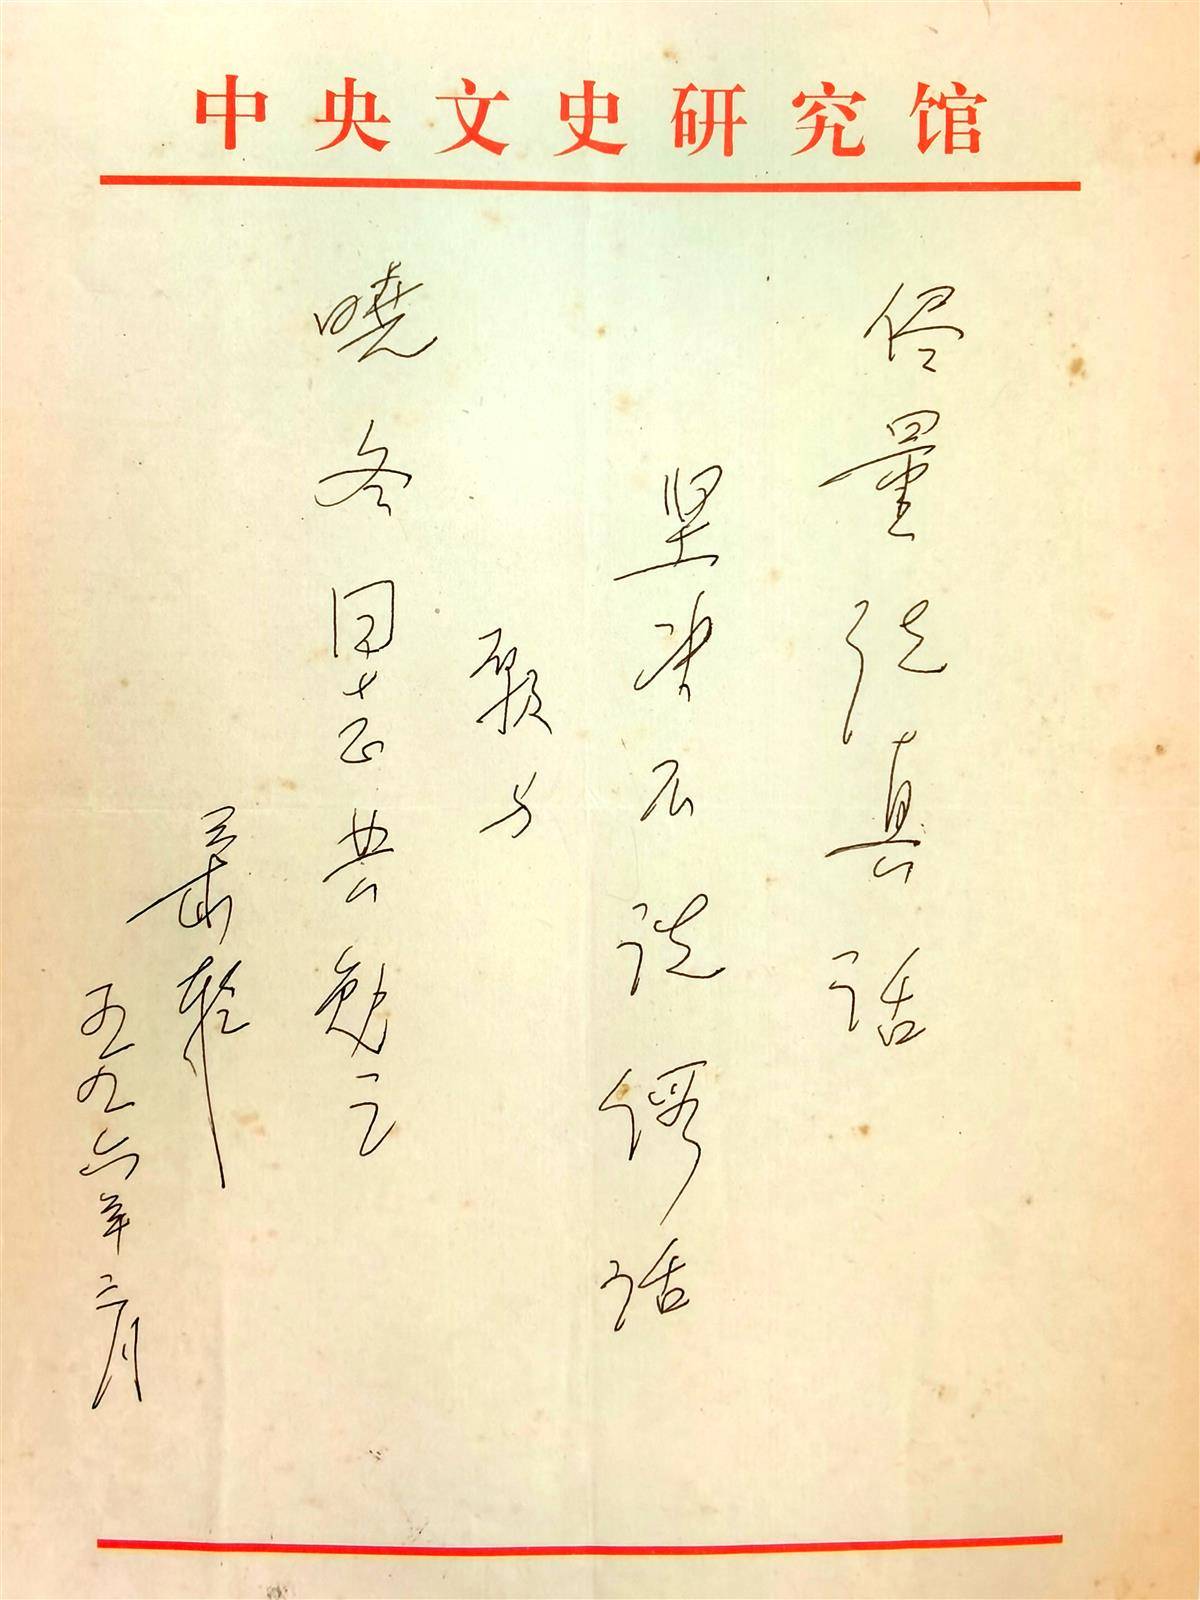 中央文史研究馆
侭量说真话
坚决不说假话
願与
曉冬同志共勉之
萧乾
一九九六年二月